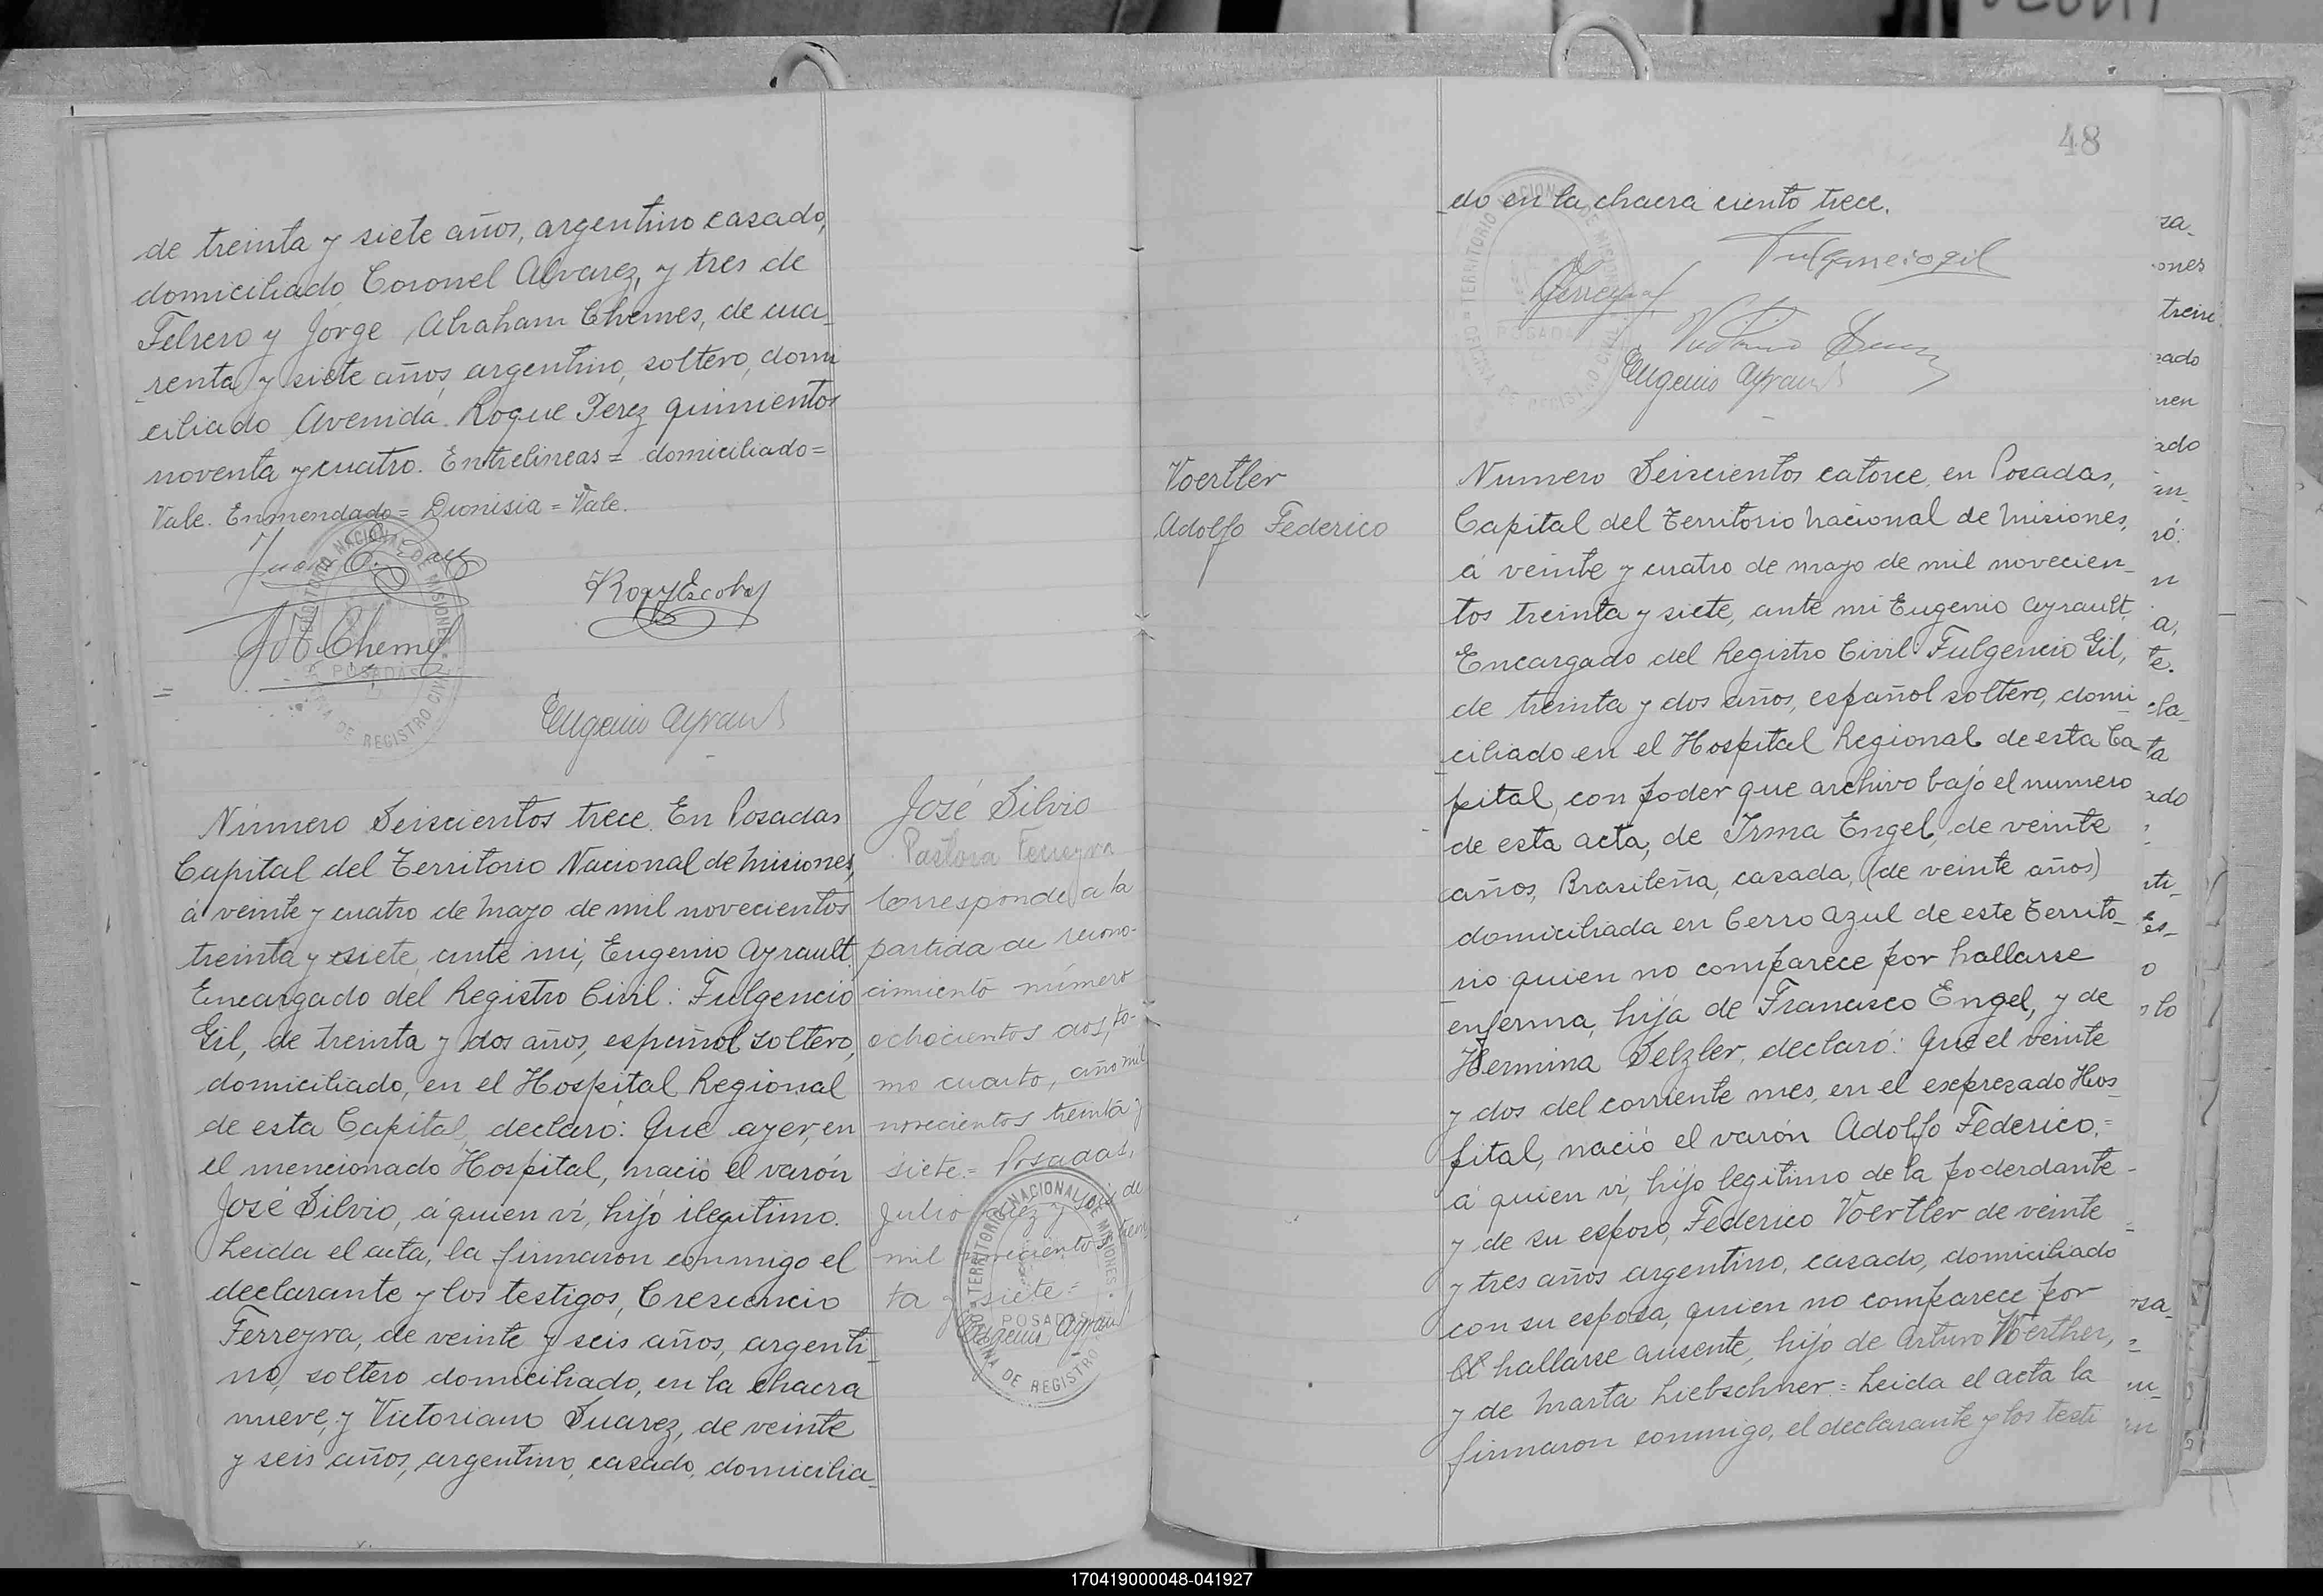 de treinta y siete años, argentino casado,
domiciliado Coronel Alvarez, y tres de
Febrero y Jorge Abraham Chemes, de cua_
renta y siete años, argentino, soltero, domi
ciliado Avenida Roque Perez quinientos
noventa y cuatro. Entrelineas = domiciliado =
Vale. Enmendado = Dionisia = Vale.
Chemes
Roque Escobar
Eugenio Ayrault
TERRITORIO NACIONAL DE MISIONES
POSADAS
OFICINA DE REGISTRO CIVIL
Número Seiscientos trece. En Posadas
Capital del Territorio Nacional de Misiones,
á veinte y cuatro de Mayo de mil novecientos
treinta y siete, ante mi, Eugenio Ayrault
Encargado del Registro Civil: Fulgencio
Gil, de treinta y dos años, español soltero,
domiciliado, en el Hospital Regional
de esta Capital, declaró: Que ayer, en
el mencionado Hospital, nació el varón
José Silvio, á quien ví, hijo ilegitimo.
Leida el acta, la firmaron conmigo el
declarante y los testigos, Crescencio
Ferreyra, de veinte y seis años, argenti_
no, soltero domiciliado, en la chacra
nueve, y Victoriano Suarez, de veinte
y seis años, argentino, casado, domicilia_
José Silvio
Pastora Ferreyra
Corresponde a la
partida de recono-
cimiento número
ochocientos dos, to-
mo cuarto, año mil
novecientos treinta y
siete = Posadas,
Julio diez y seis de
mil novecientos trein
ta y siete =
Eugenio Ayrault
TERRITORIO NACIONAL DE MISIONES
POSADAS
OFICINA DE REGISTRO
48
do en la chacra ciento trece.
Fulgencio Gil
Ferreyra
Eugenio Ayrault
TERRITORIO NACIONAL DE MISIONES
POSADAS
OFICINA DE REGISTRO CIVIL
Voertler
Adolfo Federico
Numero Seiscientos catorce, en Posadas,
Capital del Territorio Nacional de Misiones,
á veinte y cuatro de mayo de mil novecien_
tos treinta y siete, ante mi Eugenio Ayrault,
Encargado del Registro Civil Fulgencio Gil,
de treinta y dos años, español soltero, domi
ciliado en el Hospital Regional de esta Ca
pital, con poder que archivo bajo el numero
de esta acta, de Irma Engel, de veinte
años, Brasileña, casada, (de veinte años)
domiciliada en Cerro Azul de este Territo_
rio quien no comparece por hallarse
enferma, hija de Francisco Engel, y de
Hermina Selzler, declaró: Que el veinte
y dos del corriente mes, en el expresado Hos_
pital, nació el varón Adolfo Federico, =
á quien ví, hijo legitimo de la poderdante -
y de su esposo, Federico Voertler de veinte
y tres años argentino, casado, domiciliado
con su esposa, quien no comparece por
hallarse ausente, hijo de Arturo Werther,
y de Marta Liebschner = Leida el acta la
firmaron conmigo, el declarante y los testi
170419000048-041927